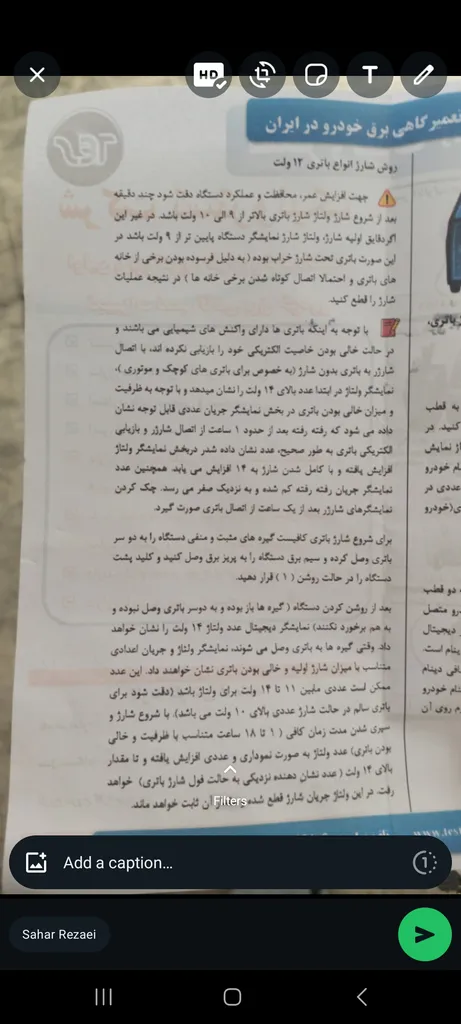 HD
T
تعمیرگاهی برق خودرو در ایران
روش شارژ انواع باتری ۱۲ ولت
جهت افزایش عمر، محافظت و عملکرد دستگاه دقت شود چند دقیقه
بعد از شروع شارژ ولتاژ شارژ باتری بالاتر از ۹ الی ۱۰ ولت باشد. در غیر این
اگر دقایق اولیه شارژ، ولتاژ شارژ نمایشگر دستگاه پایین تر از ۹ ولت باشد در
این صورت باتری تحت شارژ خراب بوده ( به دلیل فرسوده بودن برخی از خانه
های باتری و احتمالا اتصال کوتاه شدن برخی خانه ها ) در نتیجه عملیات
شارژ را قطع کنید.
با توجه به اینکه باتری ها دارای واکنش های شیمیایی می باشند و
در حالت خالی بودن خاصیت الکتریکی خود را بازیابی نکرده اند، با اتصال
شارژر به باتری بدون شارژ (به خصوص برای باتری های کوچک و موتوری )،
نمایشگر ولتاژ در ابتدا عدد بالای ۱۴ ولت را نشان میدهد و با توجه به ظرفیت
و میزان خالی بودن باتری در بخش نمایشگر جریان عددی قابل توجه نشان
داده می شود که رفته رفته بعد از حدود ۱ ساعت از اتصال شارژر و بازیابی
الکتریکی باتری به طور صحیح، عدد نشان داده شدر دربخش نمایشگر ولتاژ
افزایش یافته و با کامل شدن شارژ به ۱۴ افزایش می یابد. همچنین عدد
نمایشگر جریان رفته رفته کم شده و به نزدیک صفر می رسد. چک کردن
نمایشگرهای شارژر بعد از یک ساعت از اتصال باتری صورت گیرد.
برای شروع شارژ باتری کافیست گیره های مثبت و منفی دستگاه را به دو سر
باتری وصل کرده و سیم برق دستگاه را به پریز برق وصل کنید و کلید پشت
دستگاه را در حالت روشن ( ۱ ) قرار دهید.
بعد از روشن کردن دستگاه ( گیره ها باز بوده و به دوسر باتری وصل نبوده و
به هم برخورد نکنند) نمایشگر دیجیتال عدد ولتاژ ۱۴ ولت را نشان خواهد
داد. وقتی گیره ها به باتری وصل می شوند، نمایشگر ولتاژ و جریان اعدادی
متناسب با میزان شارژ اولیه و خالی بودن باتری نشان خواهند داد. این عدد
ممکن است عددی مابین ۱۱ تا ۱۴ ولت برای ولتاژ باشد (دقت شود برای
باتری سالم در حالت شارژ عددی بالای ۱۰ ولت می باشد). با شروع شارژ و
سپری شدن مدت زمان کافی ( ۱ تا ۱۸ ساعت متناسب با ظرفیت و خالی
بودن باتری) عدد ولتاژ به صورت نموداری و عددی افزایش یافته و تا مقدار
بالای ۱۴ ولت ( عدد نشان دهنده نزدیکی به حالت فول شارژ باتری) خواهد
رفت. در این ولتاژ جریان شارژ قطع شده آن ثابت خواهد ماند.
باتری،
به قطب
کنید. در
نمایش
خودرو
عددی در
(خودرو
دو قطب
متصل
دیجیتال
دینام است.
دینام
خودرو
روی آن
Filters
Add a caption...
1
Sahar Rezaei